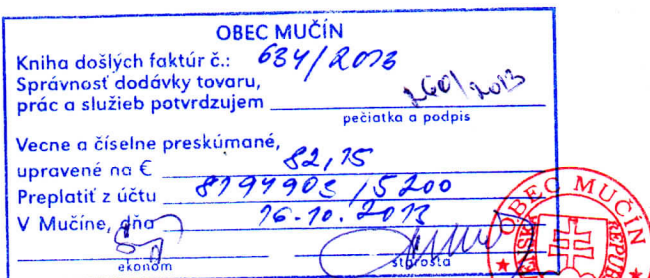 OBEC MUČÍN
Kniha došlých faktúr č.: 634/2013
Správnosť dodávky tovaru,
prác a služieb potvrdzujem 260/2013
pečiatka a podpis
Vecne a číselne preskúmané,
upravené na € 82,15
Preplatiť z účtu 8194903 /5200
V Mučíne, dňa 16.10.2013
ekonóm starosta
OBEC MUČÍN